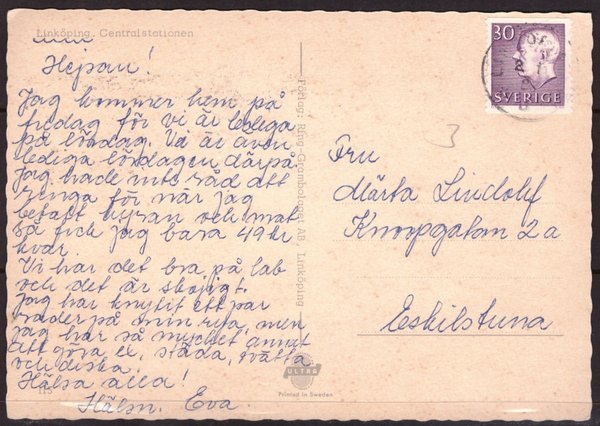 Linköping. Centralstationen
Hejsan!
Jag kommer hem på
fredag för vi är lediga
på lördag. Vi är även
lediga lördagen därpå.
Jag hade inte råd att
ringa för när jag
betalt hyran och mat
så fick jag bara 49 kr
kvar.
Vi har det bra på lab
och det är skojigt.
Jag har knytit ett par
rader på min rya, men
jag har så mycket annat
att göra ex, städa, tvätta
och diska.
Hälsa alla!
Hälsn. Eva.
113
Förlag: Ring-Grambolaget AB, Linköping
ULTRA
Printed in Sweden
30
SVERIGE
3
Fru
Märta Lindolf
Knoopgatan 2a
Eskilstuna